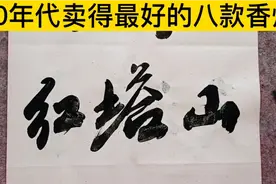 0年代卖得最好的八款香
红塔山